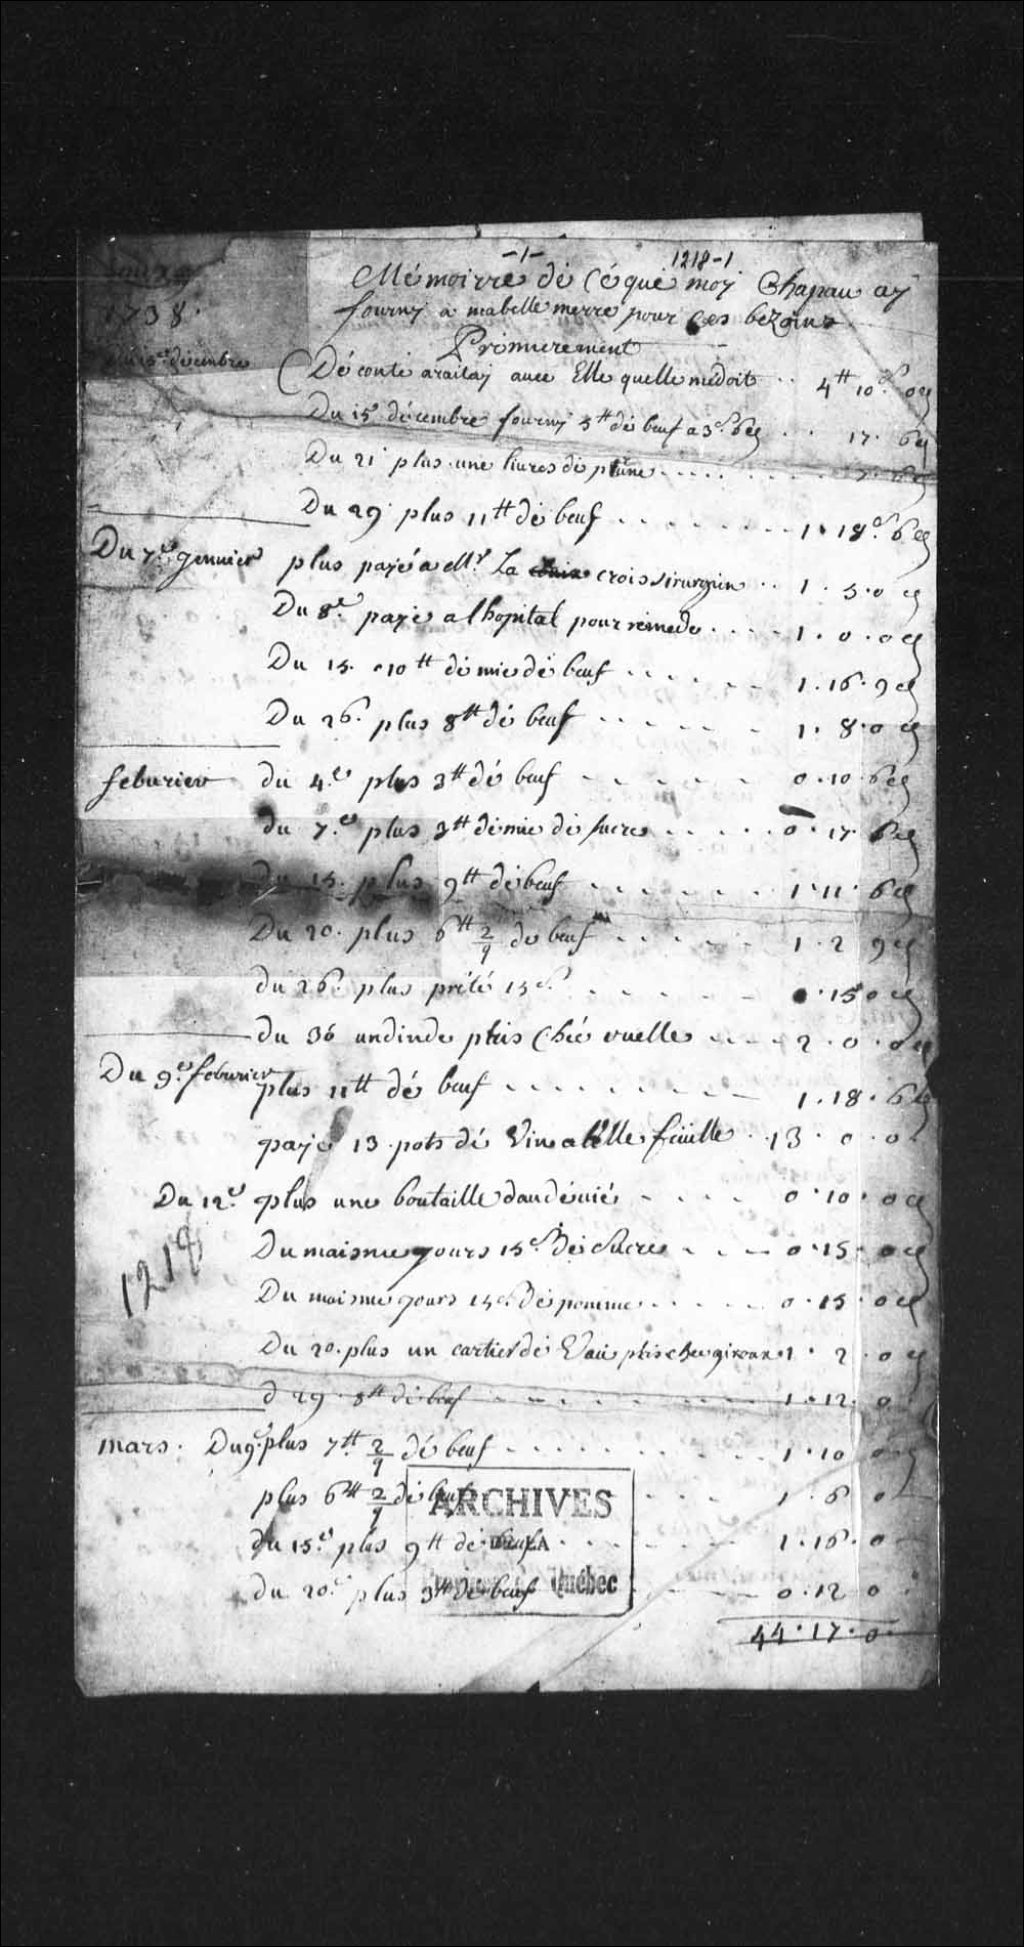 -1- 1218-1
Mémoirre dé Céqué moy Chapau ay
fourny a mabelle merre pour ces bezoins
1738.
Primierement
du 15e décembre
Dé conté araitaj avec Elle quelle medoit .. 4tt 10s 0d
Du 15 décembre fourny 5tt dé beuf a 3s 6d .. 17. 6d
Du 21 plus une liures dé plune
Du 29 plus 11tt dé beuf 1. 18s 6d
Du 7e gennier plus payé a Mr La croissirurgien .. 1. 5. 0d
Du 8e payé a lhopital pour reimede 1. 0. 0d
Du 15. 10tt démie dé beuf 1. 16. 9d
Du 26. plus 8tt dé beuf 1. 8. 0d
feburier du 4e plus 3tt dé beuf 0. 10. 6d
du 7e plus 3tt démie dé sucre 0. 17. 6d
Du 15. plus 9tt dé beuf 1. 11. 6d
Du 20. plus 6tt 2/9 de beuf 1. 2 9d
du 26. plus prété 15s 0. 15 0d
du 30 undinde pris Ché vuelle 2. 0. 0d
Du 9e feburier plus 11tt dé beuf 1. 18. 6d
payé 13 pots dé Vin a lélle feüille 13. 0. 0.
Du 12e plus une boutaille daudéuié 0. 10. 0d
1218
Du maisme jours 15s Dé Sucre 0. 15. 0d
Du maisme jours 15s Dé pomme 0. 15. 0d
Du 20. plus un cartier dé Vau pris chez giroux 1. 2. 0d
d 29. 8tt dé beuf 1. 12. 0
mars. Du 9e plus 7tt 2/9 dé beuf 1. 10 0
plus 6tt 2/9 dé beuf 1. 6 0
du 15e plus 9tt de beuf 1. 16. 0
du 20e plus 3tt de beuf 0. 12 0
44. 17. 0.
ARCHIVES
DE LA
Province de Québec